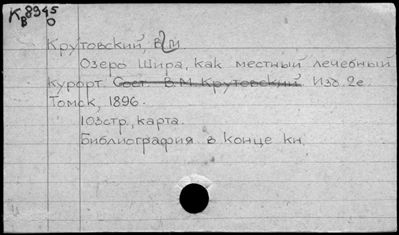 К 8945
В О
Крутовский, В.М.
Озеро Шира, как местный лечебный
курорт. Сост. В.М. Крутовский. Изд. 2е.
Томск, 1896.
103стр., карта.
Библиография в конце кн.